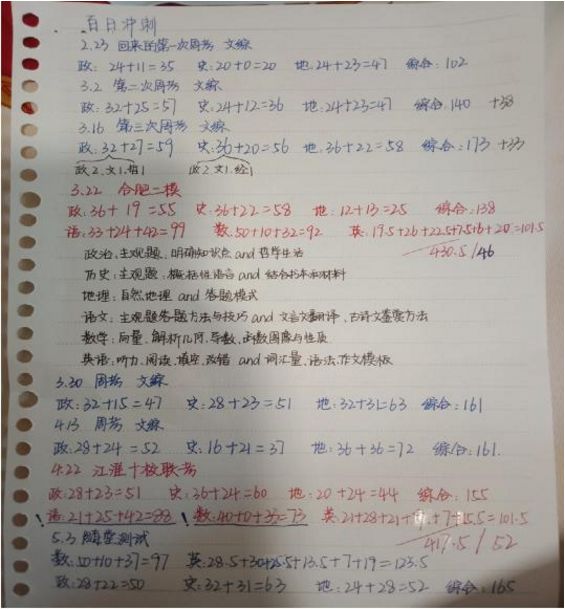 百日冲刺
2.23 回来的第一次周考 文综
政: 24+11=35 史:20+0=20 地:24+23=47 综合:102
3.2 第二次周考 文综
政:32+25=57 史:24+12=36 地:24+23=47 综合:140 +38
3.16 第三次周考 文综
政:32+27=59 史:36+20=56 地:36+22=58 综合:173 +33
政2.文1.哲1 政2.文1.经1
3.22 合肥二模
政:36+19=55 史:36+22=58 地:12+13=25 综合:138
语:33+24+42=99 数:50+10+32=92 英:19.5+26+22.5+7.5+6+20=101.5
政治:主观题、明确知识点 and 哲学生活
430.5/46
历史:主观题:概括性语言 and 结合书本和材料
地理:自然地理 and 答题模式
语文:主观题答题方法与技巧 and 文言文翻译、古诗文鉴赏方法
数学:向量、解析几何、导数、函数图像与性质
英语:听力、阅读、填空、改错 and 词汇量、语法、作文模板
3.30 周考 文综
政:32+15=47 史:28+23=51 地:32+31=63 综合:161
4.13 周考 文综
政:28+24=52 史:16+21=37 地:36+36=72 综合:161.
4.22 江淮十校联考
政:28+23=51 史:36+24=60 地:20+24=44 综合:155
语:21+25+42=88 数:40+0+33=73 英:21+28+21+ +7+ 15.5=101.5
417.5/52
5.3 随堂测试
数:50+10+37=97 英:28.5+30+25.5+13.5+7+19=123.5
政:28+22=50 史:32+31=63 地:24+28=52 综合:165